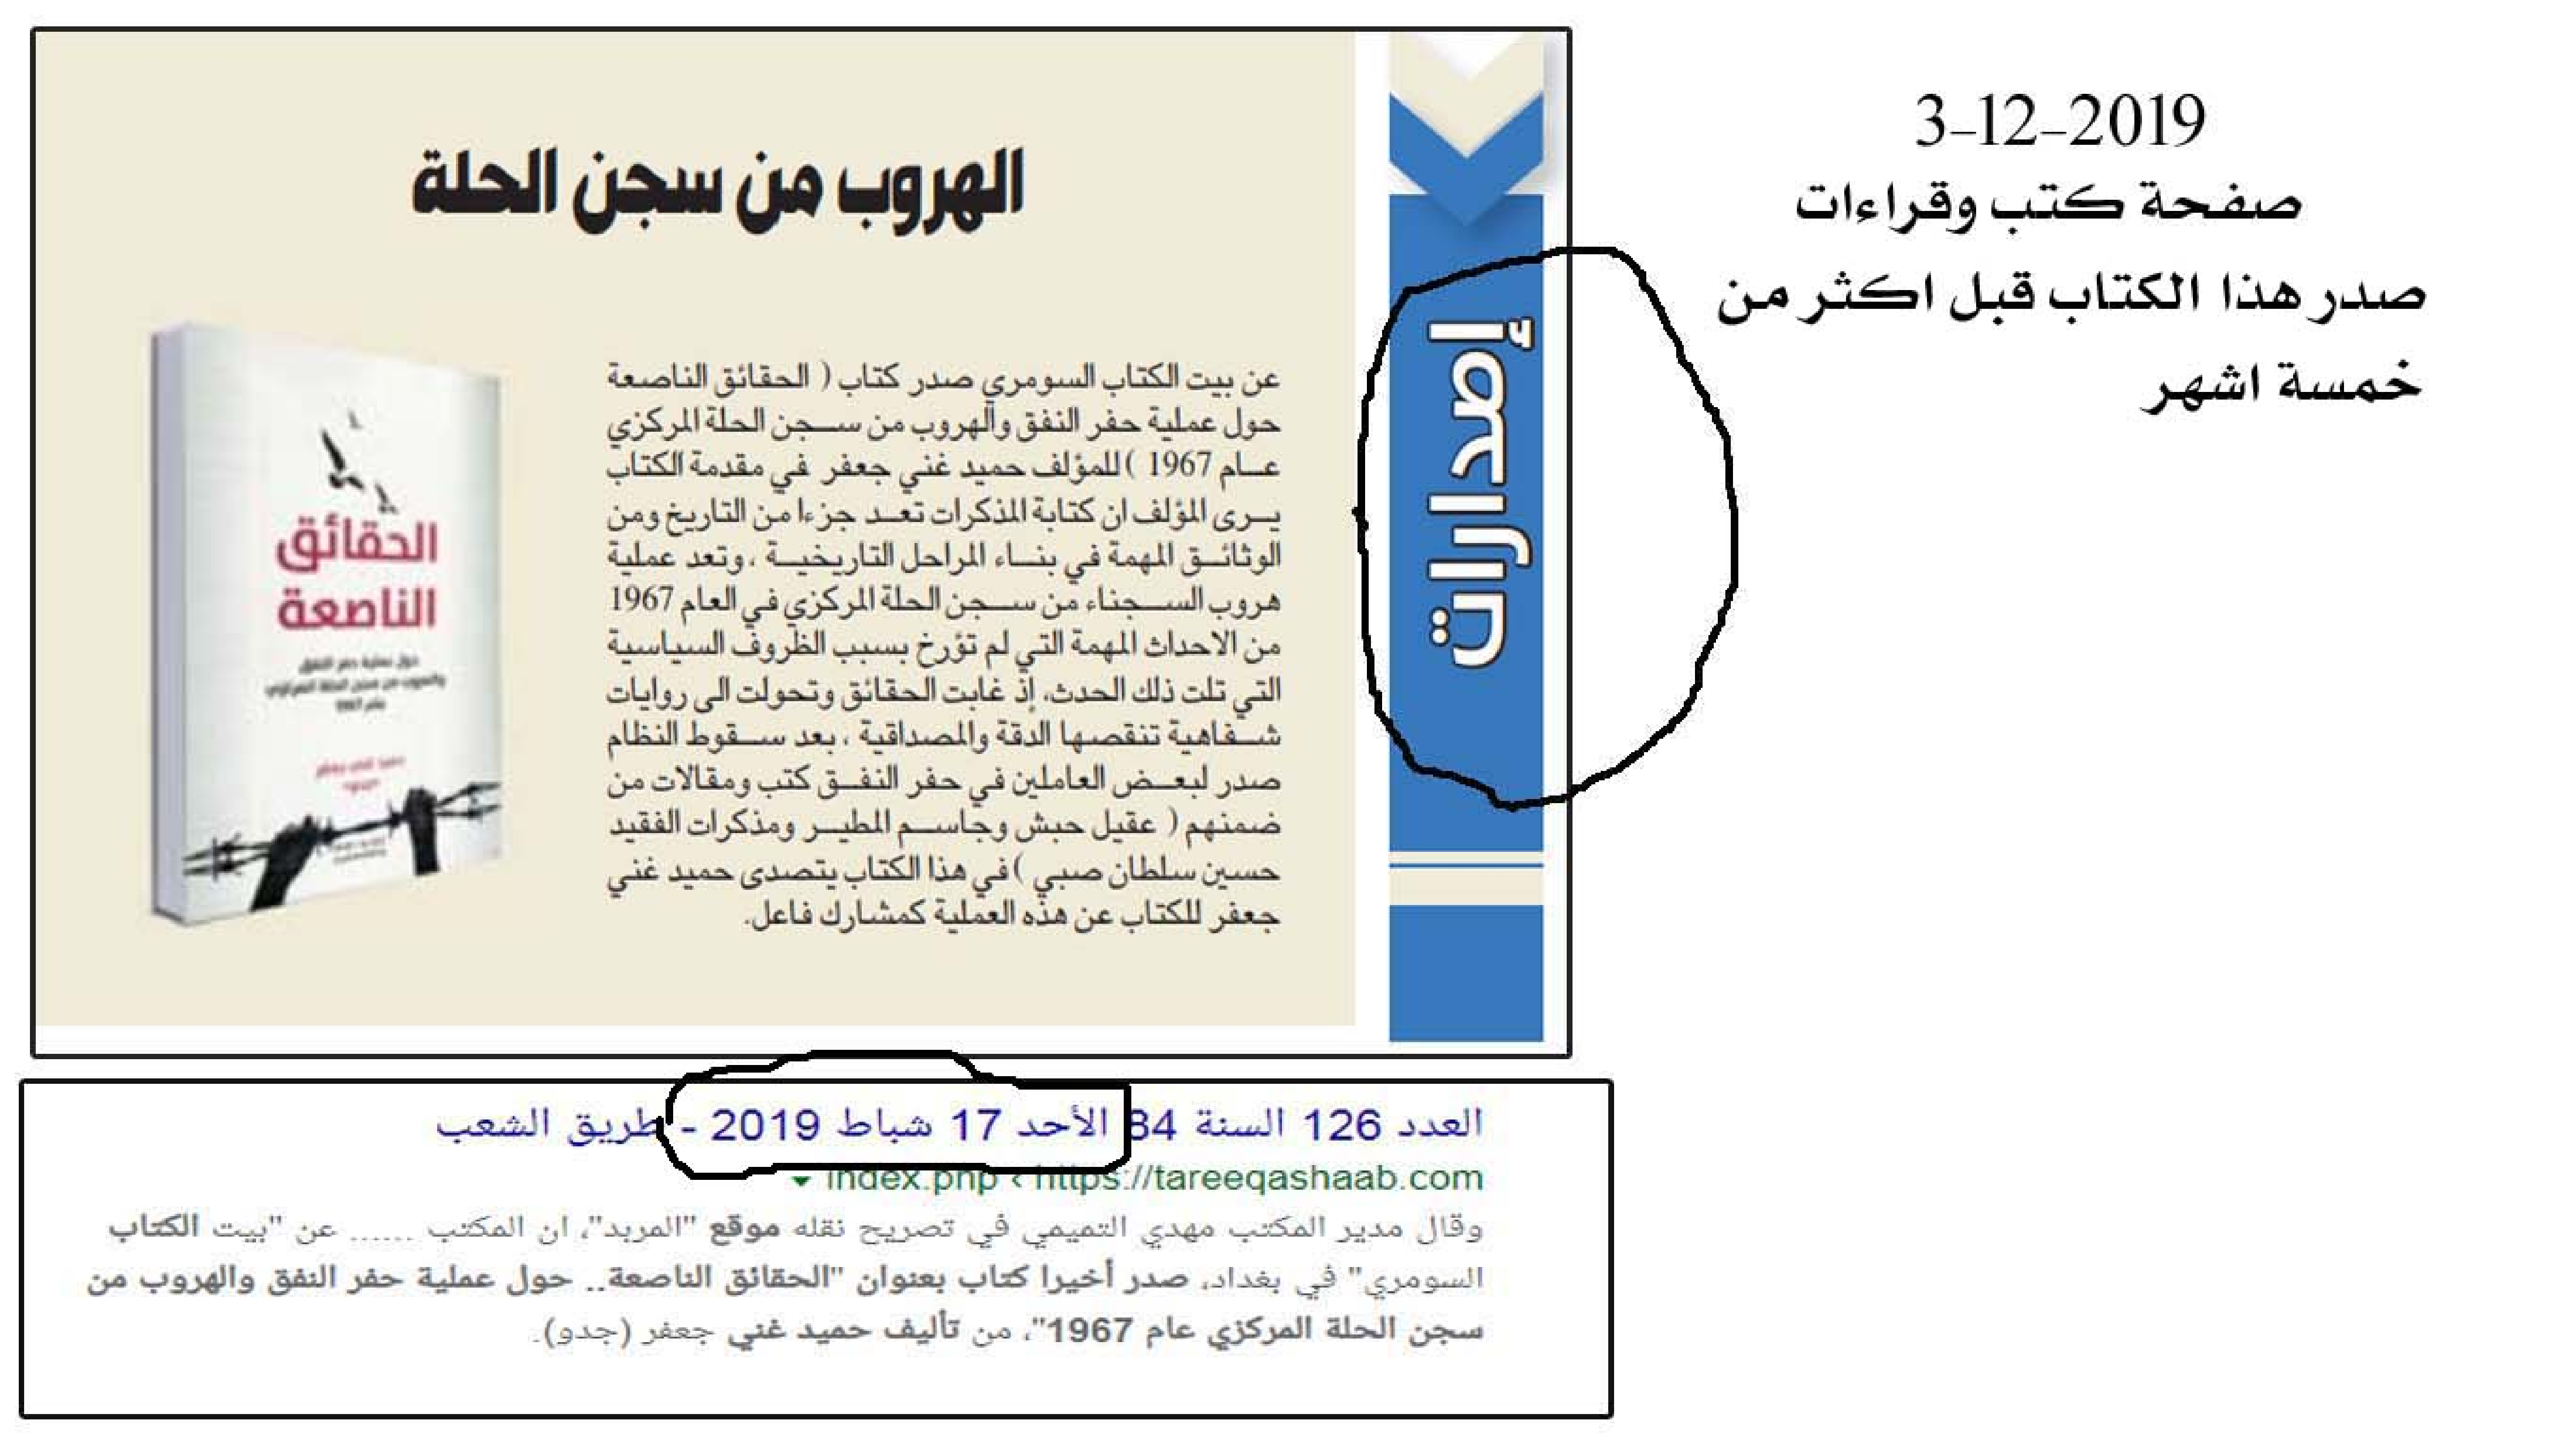 3-12-2019
صفحة كتب وقراءات
صدر هذا الكتاب قبل اكثر من
خمسة اشهر
إصدارات
الهروب من سجن الحلة
عن بيت الكتاب السومري صدر كتاب ( الحقائق الناصعة
حول عملية حفر النفق والهروب من سجن الحلة المركزي
عام 1967 ) للمؤلف حميد غني جعفر في مقدمة الكتاب
يرى المؤلف ان كتابة المذكرات تعد جزءا من التاريخ ومن
الوثائق المهمة في بناء المراحل التاريخية ، وتعد عملية
هروب السجناء من سجن الحلة المركزي في العام 1967
من الاحداث المهمة التي لم تؤرخ بسبب الظروف السياسية
التي تلت ذلك الحدث، إذ غابت الحقائق وتحولت الى روايات
شفاهية تنقصها الدقة والمصداقية ، بعد سقوط النظام
صدر لبعض العاملين في حفر النفق كتب ومقالات من
ضمنهم ( عقيل حبش وجاسم المطير ومذكرات الفقيد
حسين سلطان صبي ) في هذا الكتاب يتصدى حميد غني
جعفر للكتاب عن هذه العملية كمشارك فاعل.
الحقائق
الناصعة
حول عملية حفر النفق
والهروب من سجن الحلة المركزي
عام 1967
العدد 126 السنة 84 الأحد 17 شباط 2019 - طريق الشعب
https://tareeqashaab.com › index.php
وقال مدير المكتب مهدي التميمي في تصريح نقله موقع "المربد"، ان المكتب ...... عن "بيت الكتاب
السومري" في بغداد، صدر أخيرا كتاب بعنوان "الحقائق الناصعة.. حول عملية حفر النفق والهروب من
سجن الحلة المركزي عام 1967"، من تأليف حميد غني جعفر (جدو).